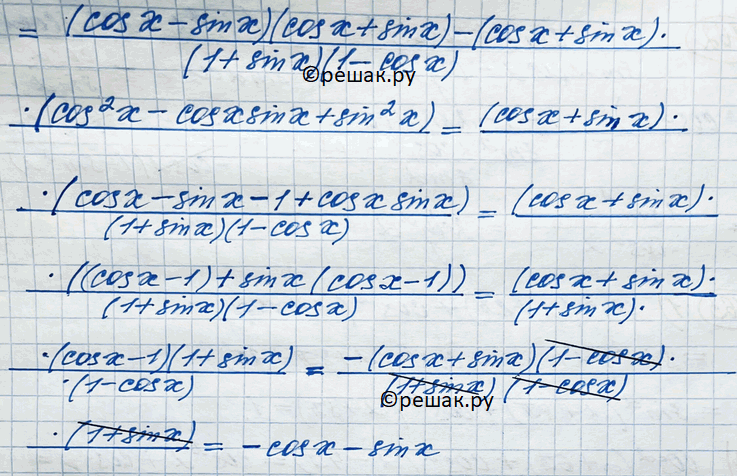 = (cos x − sin x)(cos x + sin x) − (cos x + sin x) ·
(1 + sin x)(1 − cos x)
©решак.ру
· (cos² x − cos x sin x + sin² x) = (cos x + sin x) ·
· (cos x − sin x − 1 + cos x sin x) = (cos x + sin x) ·
(1 + sin x)(1 − cos x)
· ((cos x − 1) + sin x (cos x − 1)) = (cos x + sin x) ·
(1 + sin x)(1 − cos x) (1 + sin x) ·
· (cos x − 1)(1 + sin x) = −(cos x + sin x)(1 − cos x) ·
· (1 − cos x) (1 + sin x) (1 − cos x)
©решак.ру
· (1 + sin x) = − cos x − sin x